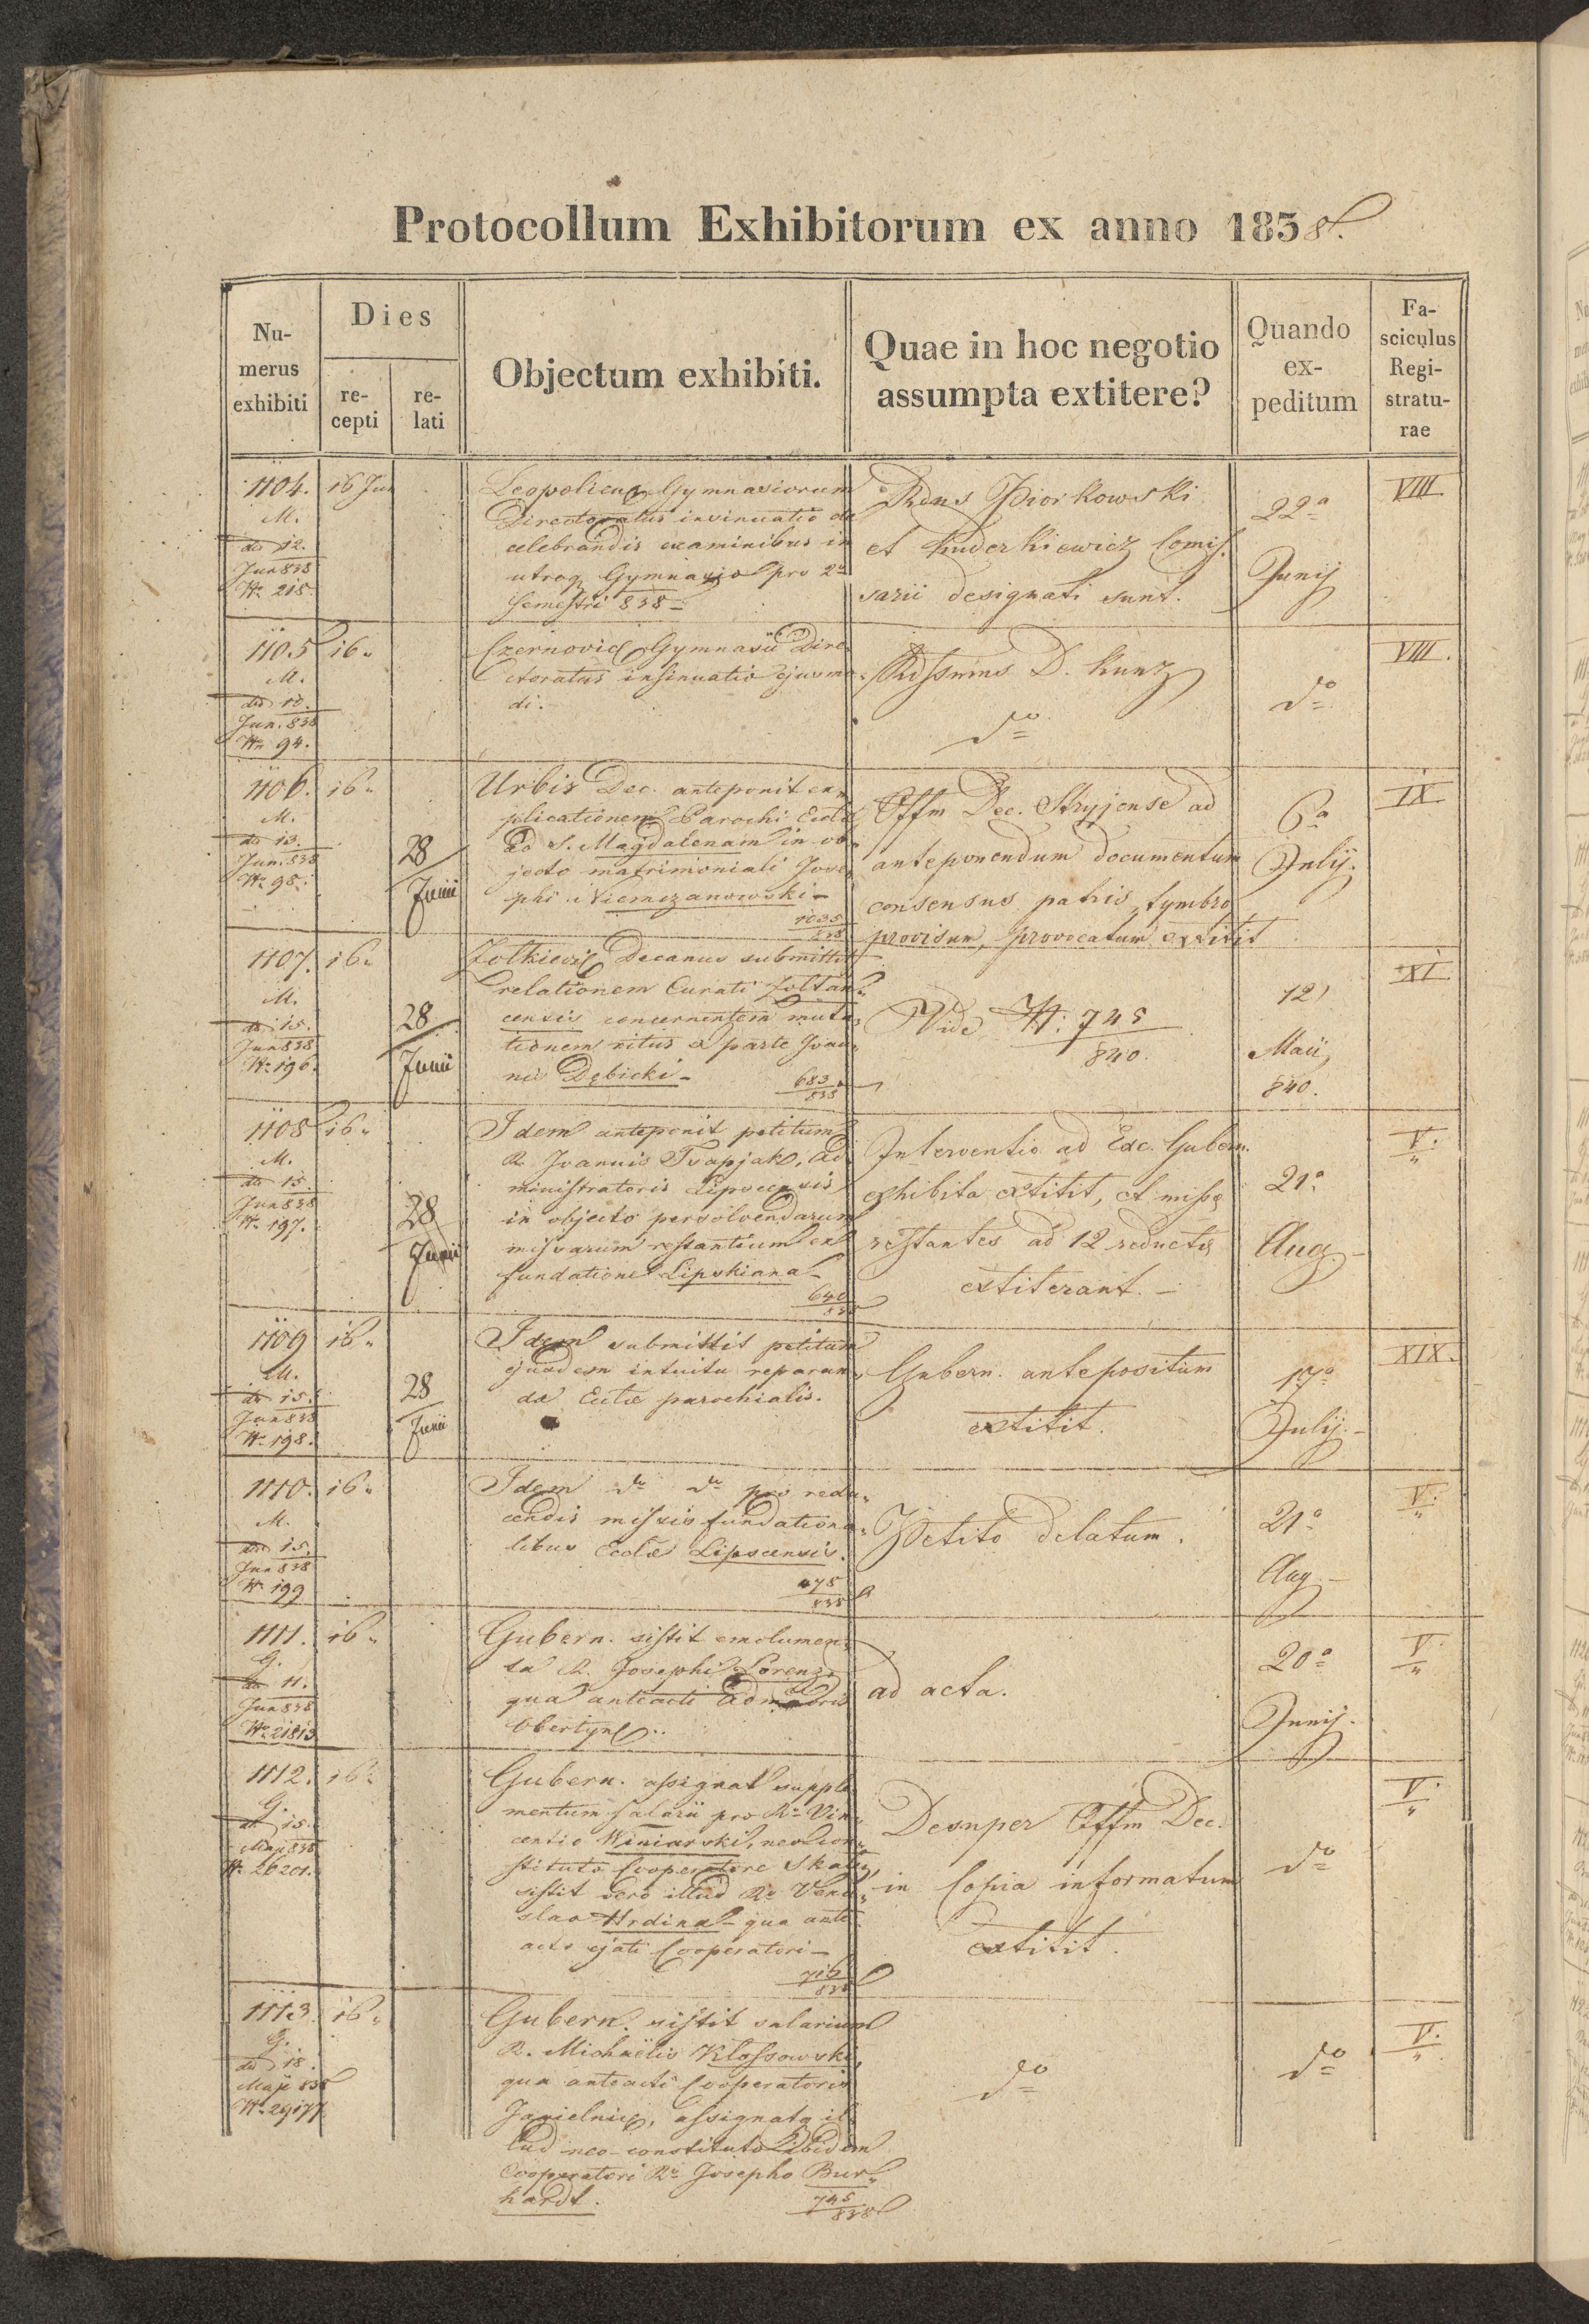 Protocollum Exhibitorum ex anno 1838.
Nu-
merus
exhibiti
Dies
re-
cepti
re-
lati
Objectum exhibiti.
Quae in hoc negotio
assumpta extitere?
Quando
ex-
peditum
Fa-
sciculus
Regi-
stratu-
rae
1104.
M.
dto 12.
Jun 838
Nr. 215.
16 Jun
Leopoliens Gymnasiorum
Directoratus insinuatio de
celebrandis examinibus in
utroq Gymnasio pro 2do
semestri 838 -
Rdus Piorkowski
et Kuderkiewicz Comis.
sarii designati sunt.
22a
Junij
VIII
1105
M.
dto 10.
Jun. 838
Nr. 94.
16.
Czernovic Gymnasii Dire-
ctoratus insinuatio ejusmo-
di.
Rdssmus D. Kunz
do
do
VIII.
1106.
M.
dto 13.
Jun. 838
Nr. 98.
16.
28
Junii
Urbis Dec. anteponit ex-
plicationem Parochi Ecclae
ad S. Magdalenam in ob-
jecto matrimoniali Jose-
phi Niemczanowski -
1035
838
Offm Dec. Stryjense ad
anteponendum documentum
consensus patris, tymbro
provisum, provocatum extitit
6a
Julij.
IX
1107.
M.
dto 15.
Jun 838
Nr. 196.
16.
28
Junii
Zolkievie Decanus submittit
relationem Curati Zoltan-
censis concernentem muta-
tionem ritus ex parte Joan-
nis Dębicki -
683
838
Vide Nr: 745
840.
12)
Maii,
840.
XI
1108
M.
dto 15.
Jun 838
Nr. 197.
16.
28
Junii
Idem anteponit petitum
R. Joannis Trapjak, Ad-
ministratoris Lipscensis
in objecto persolvendarum
missarum restantium ex
fundatione Lipskiana -
640
838
Interventio ad Exc. Gubern.
exhibita extitit, et missae
restantes ad 12 reductae
extiterant. -
21a
Aug -
V.
1109
M.
dto 15.
Jun 838
Nr. 198.
16.
28
Junii
Idem submittit petitum
ejusdem intuitu reparan-
dae Ecclae parochialis.
Gubern. antepositum
extitit.
17a
Julij. -
XIX.
1110.
M.
dto 15.
Jun 838
Nr. 199
16.
Idem do do pro redu-
cendis missis fundationa-
libus Ecclae Lipscensis.
838
Petito delatum.
21a
Aug. -
V.
1111.
G.
dto 11.
Jun 838
Nr. 21813
16.
Gubern. sistit emolumen-
ta R. Josephi Lorenz,
qua anteacti
Obertyne..
ad acta.
20a
Junij.
V.
1112.
G.
dto 15.
Maji 838
Nr. 26201.
16.
Gubern. assignat supple-
mentum salarii pro Ro Vin-
centio Winiarski, neo con-
stituto Cooperatore
sistit vero illud Ro Vence-
slao Hrdina - qua ante
acto ejati Cooperatori -
716
838
Desuper Offm Dec.
in Copia informatum
extitit.
do
V.
1113.
G.
dto 18.
Maji 838
Nr. 29177
16.
Gubern. sistit salarium
R. Michaëlis Klossowski,
qua anteacti Cooperatoris
Jagielnice, assignata il-
lud neo-constituto ibidem
Cooperatori Ro Josepho Bur-
hardt.
745
838
do
do
V.